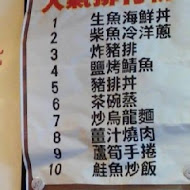 人氣排行榜
1 生魚海鮮丼
2 柴魚冷洋蔥
3 炸豬排
4 鹽烤鯖魚
5 豬排丼
6 茶碗蒸
7 炒烏龍麵
8 薑汁燒肉
9 蘆筍手捲
10 鮭魚炒飯